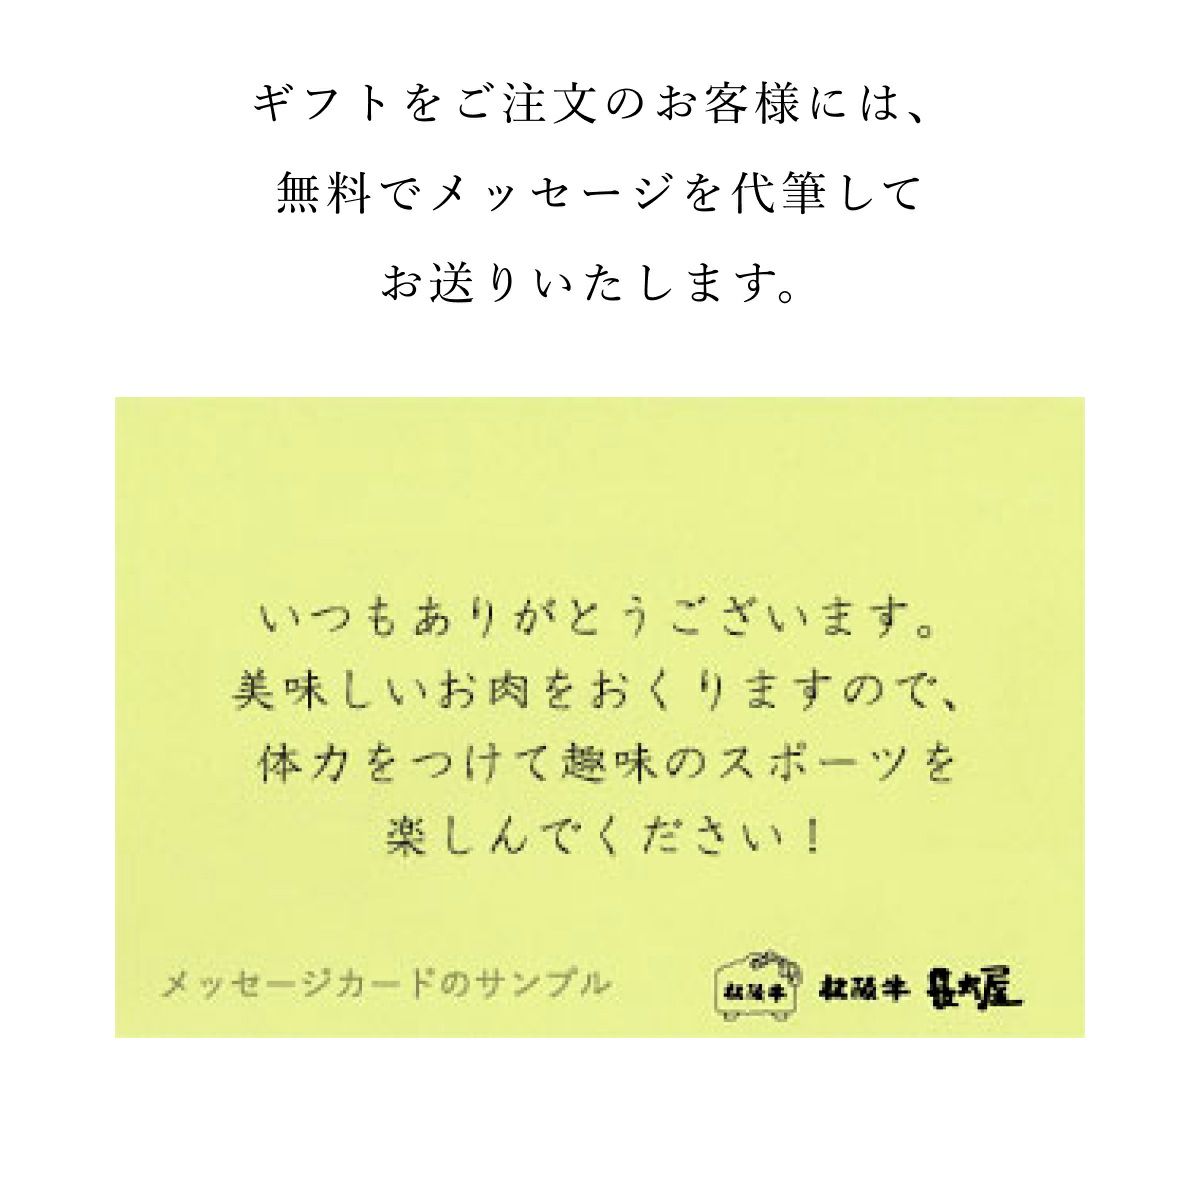 ギフトをご注文のお客様には、
無料でメッセージを代筆して
お送りいたします。
いつもありがとうございます。
美味しいお肉をおくりますので、
体力をつけて趣味のスポーツを
楽しんでください！
メッセージカードのサンプル
松阪牛
松阪牛